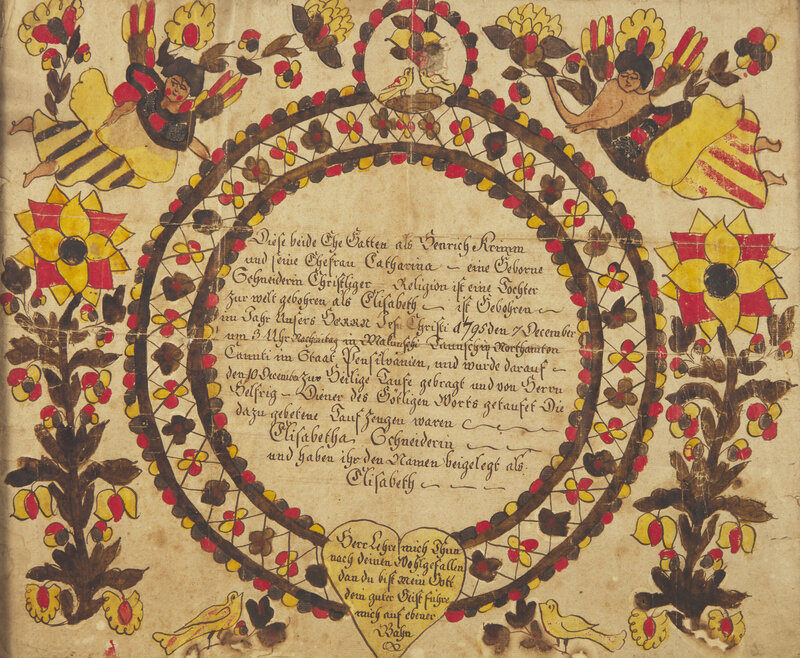 Diese beide Ehe Gatten als Henrich Krimm
und seine Ehefrau Catharina – eine Geborne
Schneiderin Christliger Religion ist eine Tochter
zur welt gebohren als Elisabeth – ist Gebohren –
im Jahr Unsers Herrn Jesu Christi d 1795 den 7 December
um 3 Uhr Nachmitag in Townschip Northamton
Caunti im Staat Pensilvanien, und wurde darauf –
den 10 December zur Heilige Taufe gebragt und von Herrn
Helfrig – Diener des Götligen Worts getaufet Die
dazu gebetene Tauf Zeugen waren –
Elisabetha Schneiderin –
und haben ihr den Namen beigelegt als
Elisabeth – – –
Herr Lehre mich Thun
nach deinen Wohlgefallen
dan du bist mein Gott
dein guter Geist führe
mich auf ebener
Bahn